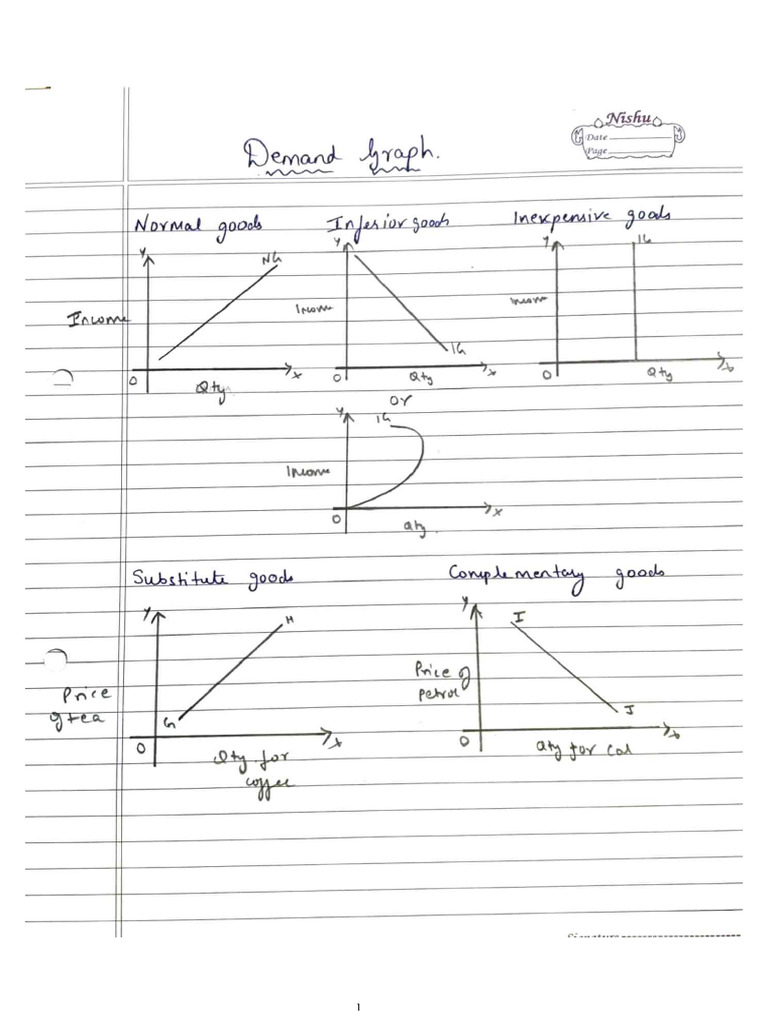 Nishu
Date
Page
Demand Graph.
Normal goods
Inferior goods
Inexpensive goods
Y
NG
Income
O
Qty
x
Y
Income
IG
O
Qty
x
Y
IG
Income
O
Qty
or
Y
IG
Income
O
Qty
x
Substitute goods
Complementary goods
Y
H
Price
of tea
G
O
Qty for
coffee
x
Y
I
Price of
petrol
J
O
Qty for car
1